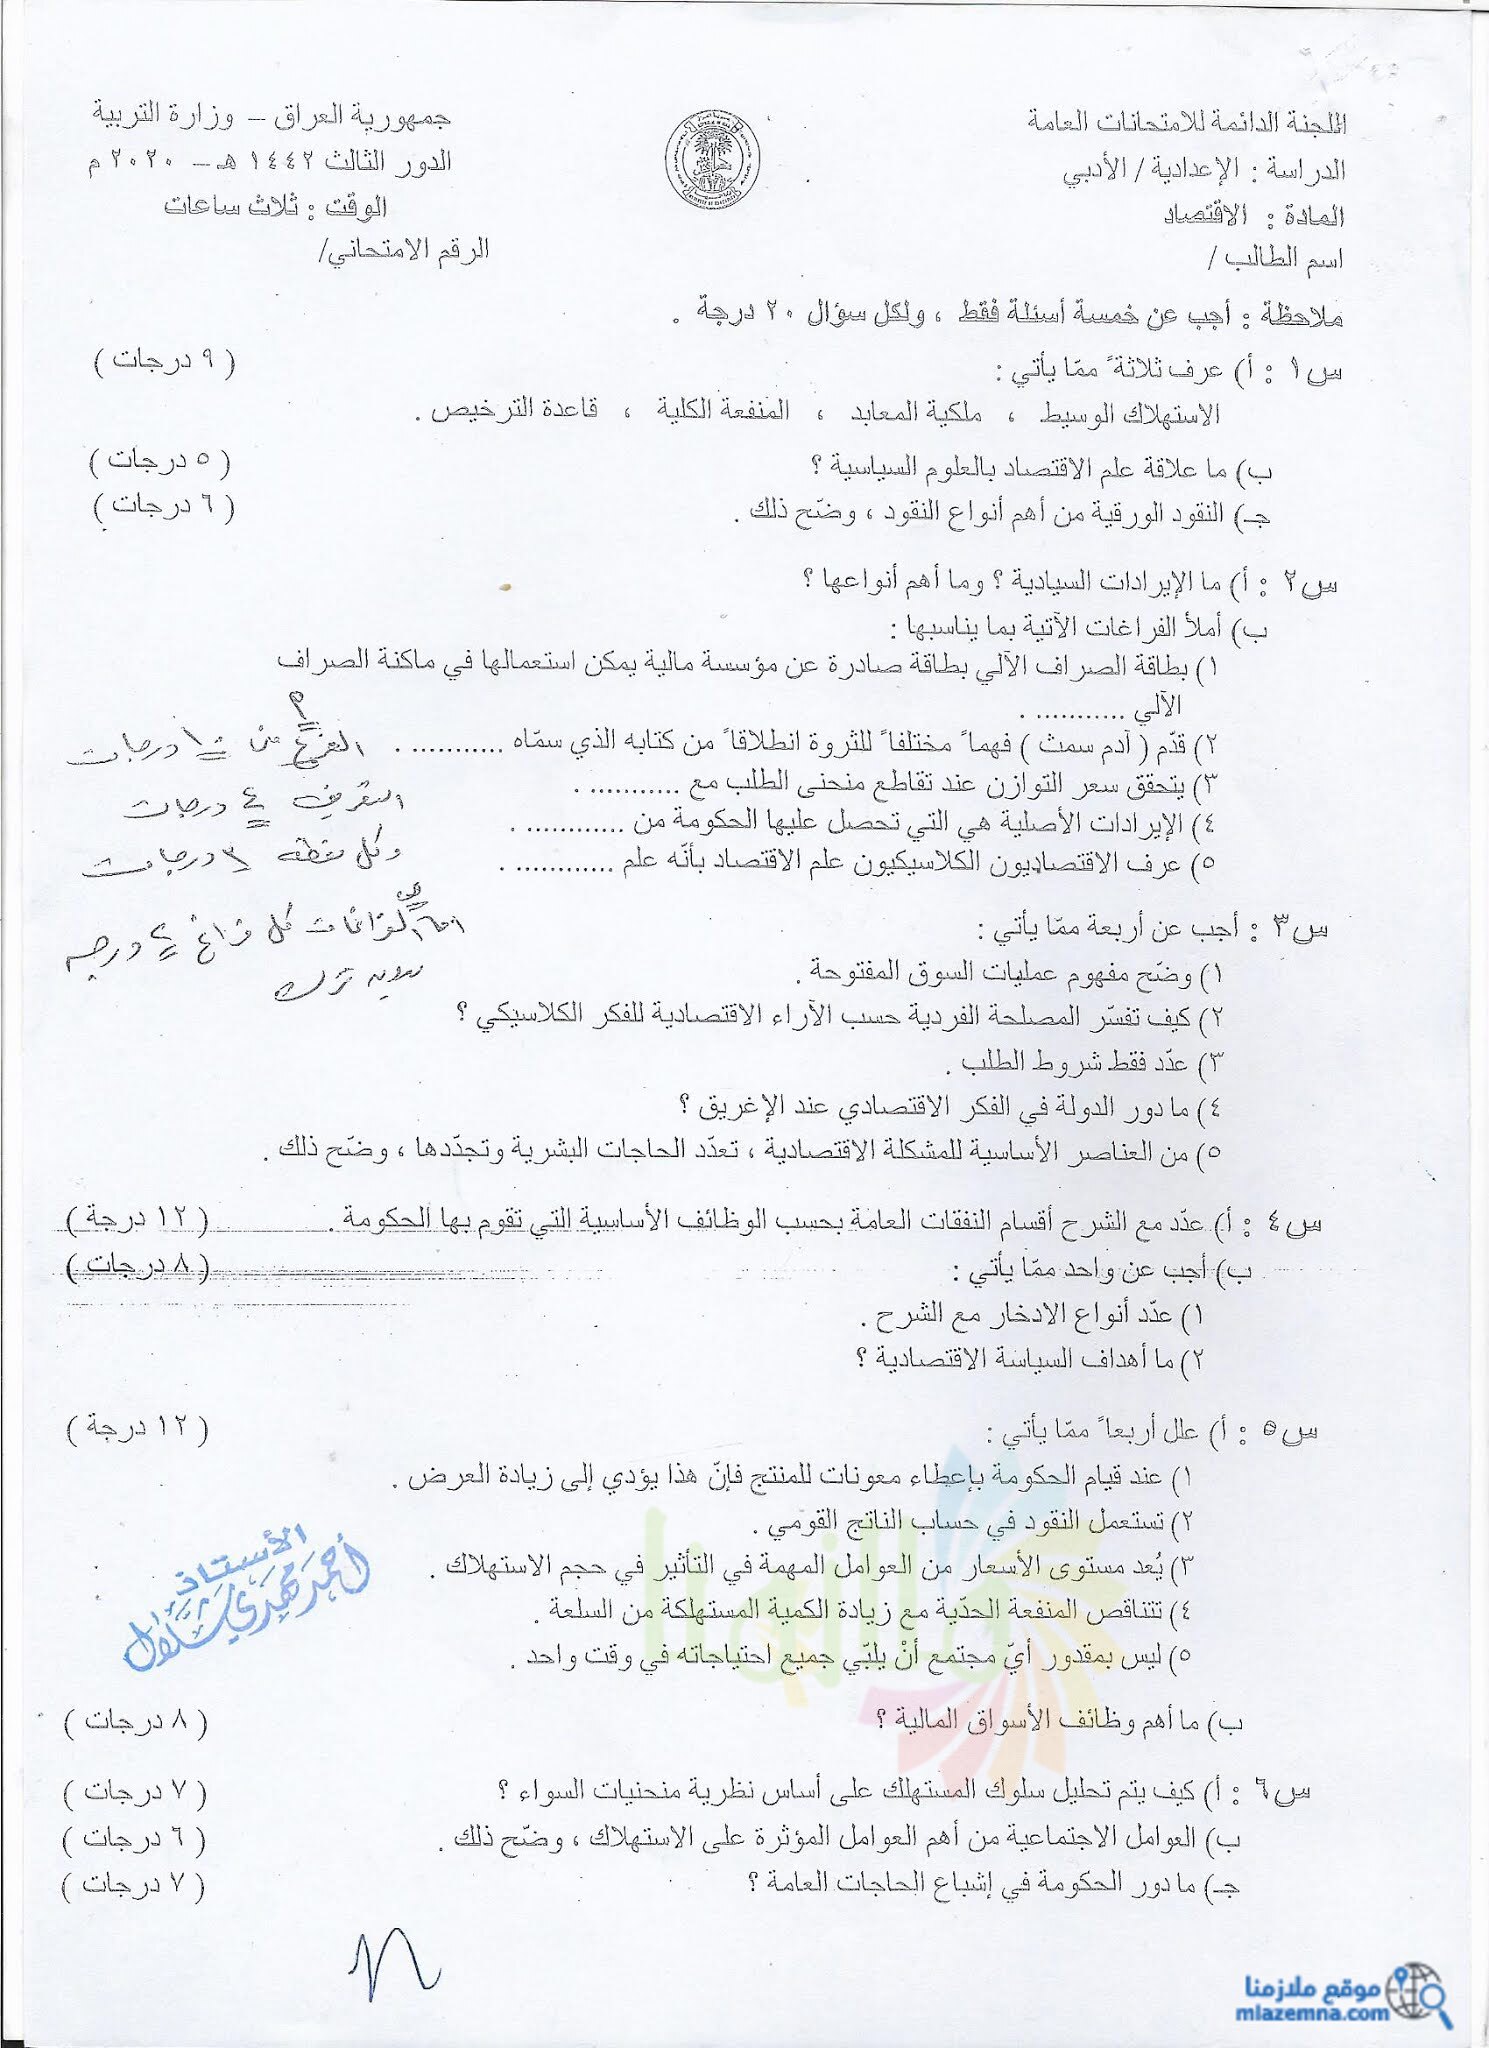 اللجنة الدائمة للامتحانات العامة
الدراسة : الإعدادية / الأدبي
المادة : الاقتصاد
اسم الطالب /
جمهورية العراق – وزارة التربية
الدور الثالث ١٤٤٢ هـ – ٢٠٢٠ م
الوقت : ثلاث ساعات
الرقم الامتحاني/
ملاحظة : أجب عن خمسة أسئلة فقط ، ولكل سؤال ٢٠ درجة .
س١ : أ) عرف ثلاثةً ممّا يأتي : ( ٩ درجات )
الاستهلاك الوسيط ، ملكية المعابد ، المنفعة الكلية ، قاعدة الترخيص .
ب) ما علاقة علم الاقتصاد بالعلوم السياسية ؟ ( ٥ درجات )
جـ) النقود الورقية من أهم أنواع النقود ، وضّح ذلك . ( ٦ درجات )
س٢ : أ) ما الإيرادات السيادية ؟ وما أهم أنواعها ؟
ب) أملأ الفراغات الآتية بما يناسبها :
١) بطاقة الصراف الآلي بطاقة صادرة عن مؤسسة مالية يمكن استعمالها في ماكنة الصراف
الآلي ........... .
٢) قدّم ( آدم سمث ) فهماً مختلفاً للثروة انطلاقاً من كتابه الذي سمّاه ........... .
٣) يتحقق سعر التوازن عند تقاطع منحنى الطلب مع ........... .
٤) الإيرادات الأصلية هي التي تحصل عليها الحكومة من ............ .
٥) عرف الاقتصاديون الكلاسيكيون علم الاقتصاد بأنّه علم ............ .
من ١٠ درجات
التعريف ٤ درجات
وكل نقطة ٣ درجات
كل فراغ ٢ درجة
بدون ترك
س٣ : أجب عن أربعة ممّا يأتي :
١) وضّح مفهوم عمليات السوق المفتوحة .
٢) كيف تفسّر المصلحة الفردية حسب الآراء الاقتصادية للفكر الكلاسيكي ؟
٣) عدّد فقط شروط الطلب .
٤) ما دور الدولة في الفكر الاقتصادي عند الإغريق ؟
٥) من العناصر الأساسية للمشكلة الاقتصادية ، تعدّد الحاجات البشرية وتجدّدها ، وضّح ذلك .
س٤ : أ) عدّد مع الشرح أقسام النفقات العامة بحسب الوظائف الأساسية التي تقوم بها الحكومة . ( ١٢ درجة )
ب) أجب عن واحد ممّا يأتي : ( ٨ درجات )
١) عدّد أنواع الادخار مع الشرح .
٢) ما أهداف السياسة الاقتصادية ؟
س٥ : أ) علل أربعاً ممّا يأتي : ( ١٢ درجة )
١) عند قيام الحكومة بإعطاء معونات للمنتج فإنّ هذا يؤدي إلى زيادة العرض .
٢) تستعمل النقود في حساب الناتج القومي .
٣) يُعد مستوى الأسعار من العوامل المهمة في التأثير في حجم الاستهلاك .
٤) تتناقص المنفعة الحدّية مع زيادة الكمية المستهلكة من السلعة .
٥) ليس بمقدور أيّ مجتمع أنْ يلبّي جميع احتياجاته في وقت واحد .
الأستاذ
أحمد مهدي شلال
ملازمنا
ب) ما أهم وظائف الأسواق المالية ؟ ( ٨ درجات )
س٦ : أ) كيف يتم تحليل سلوك المستهلك على أساس نظرية منحنيات السواء ؟ ( ٧ درجات )
ب) العوامل الاجتماعية من أهم العوامل المؤثرة على الاستهلاك ، وضّح ذلك . ( ٦ درجات )
جـ) ما دور الحكومة في إشباع الحاجات العامة ؟ ( ٧ درجات )
موقع ملازمنا
mlazemna.com